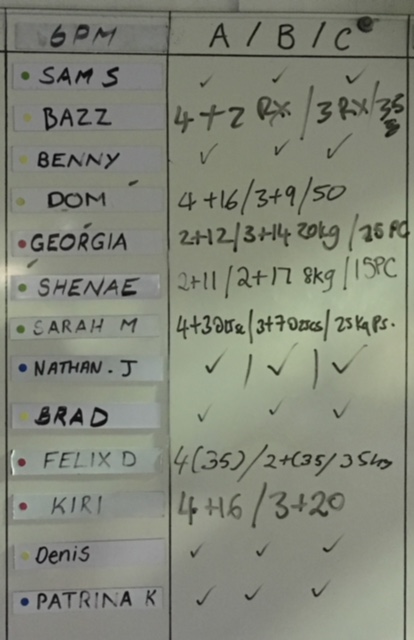 6PM A / B / C
SAM S ✓ ✓ ✓
BAZZ 4+2 RX / 3 RX / 35
BENNY ✓ ✓ ✓
DOM 4+16/3+9/50
GEORGIA 2+12/3+14 20kg / 25 PC
SHENAE 2+11/2+17 8kg / 15PC
SARAH M 4+3 / 3+7 / 25kg Ps.
NATHAN. J ✓ | ✓ | ✓
BRAD ✓ ✓ ✓
FELIX D 4(35)/2+(35/35kg
KIRI 4+16 / 3+20
Denis ✓ ✓ ✓
PATRINA K ✓ ✓ ✓